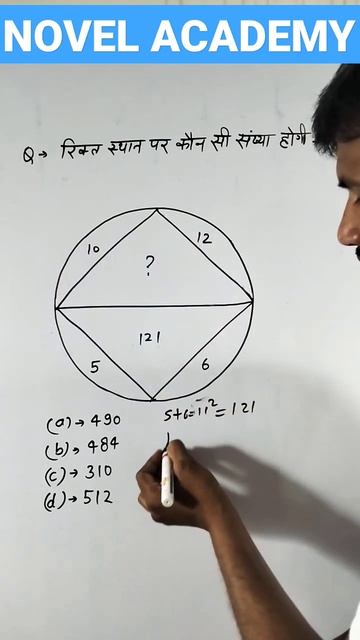 NOVEL ACADEMY
Q→ रिक्त स्थान पर कौन सी संख्या होगी
10
12
?
121
5
6
(a)→ 490
5+6=11²=121
(b)→ 484
(c)→ 310
(d)→ 512